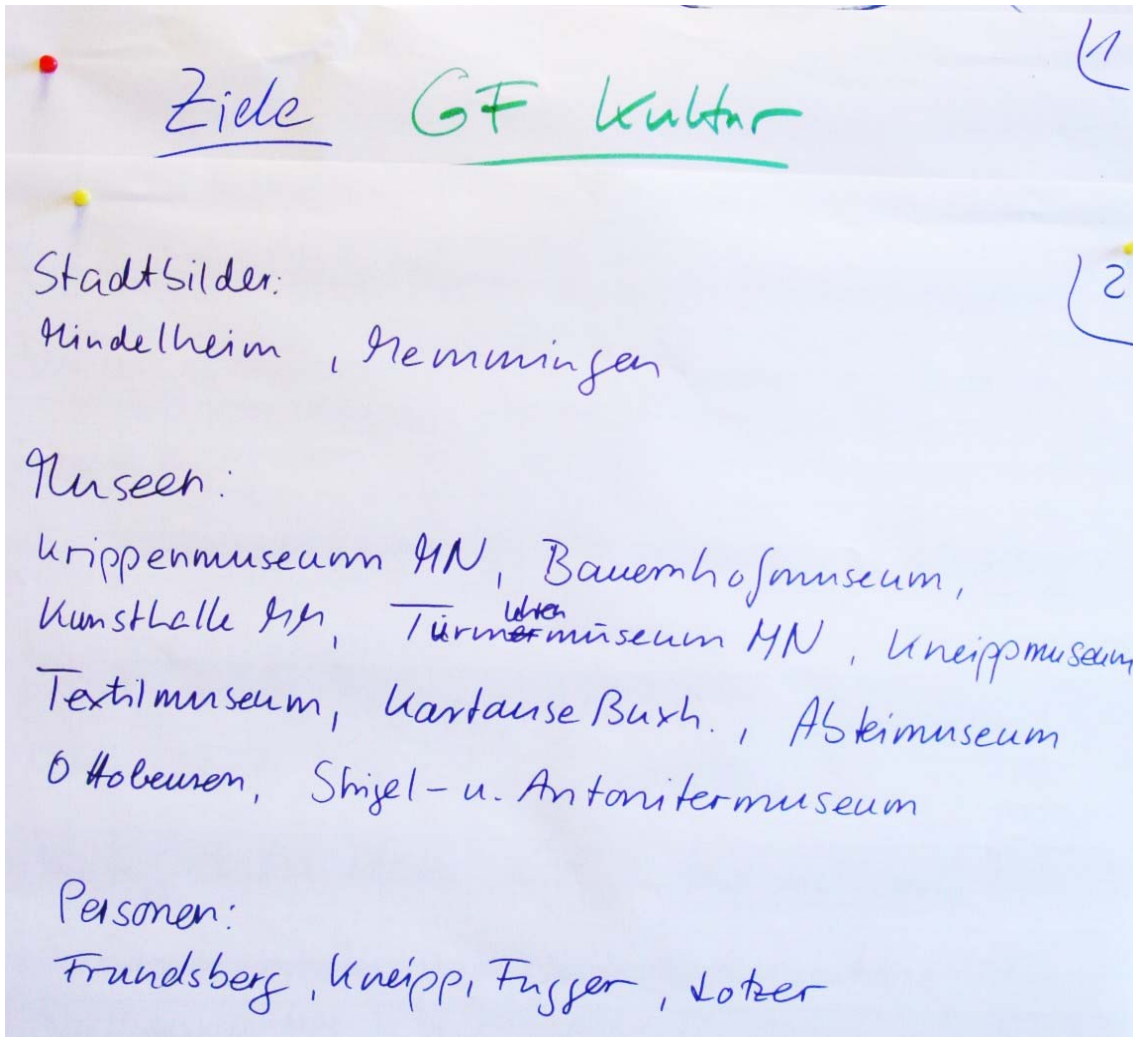 Ziele GF Kultur
1
Stadtbilder:
2
Mindelheim, Memmingen
Museen:
Krippenmuseum MN, Bauernhofmuseum,
Kunsthalle MM, Turmuhrenmuseum MN, Kneippmuseum
Textilmuseum, Kartause Buxh., Abteimuseum
Ottobeuren, Strigel- u. Antonitermuseum
Personen:
Frundsberg, Kneipp, Fugger, Lotzer